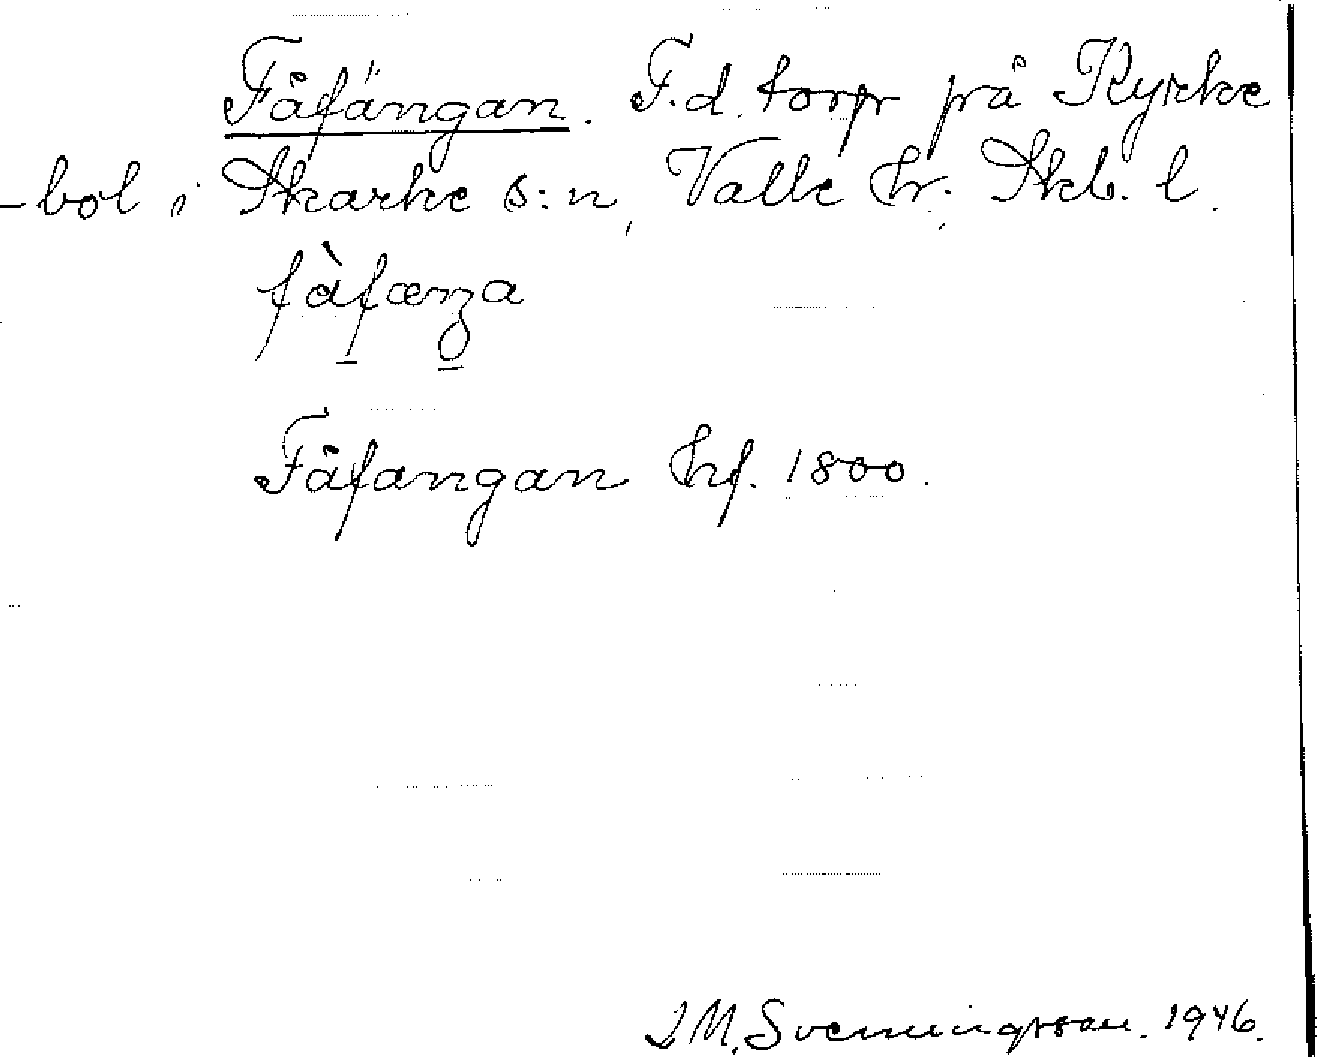 Fåfängan. F.d. torp på Kyrke
-bol i Skarke s:n, Valle hr. Skb. l.
fåfæŋa
Fåfangan hf. 1800.
J M. Svenningsson. 1946.